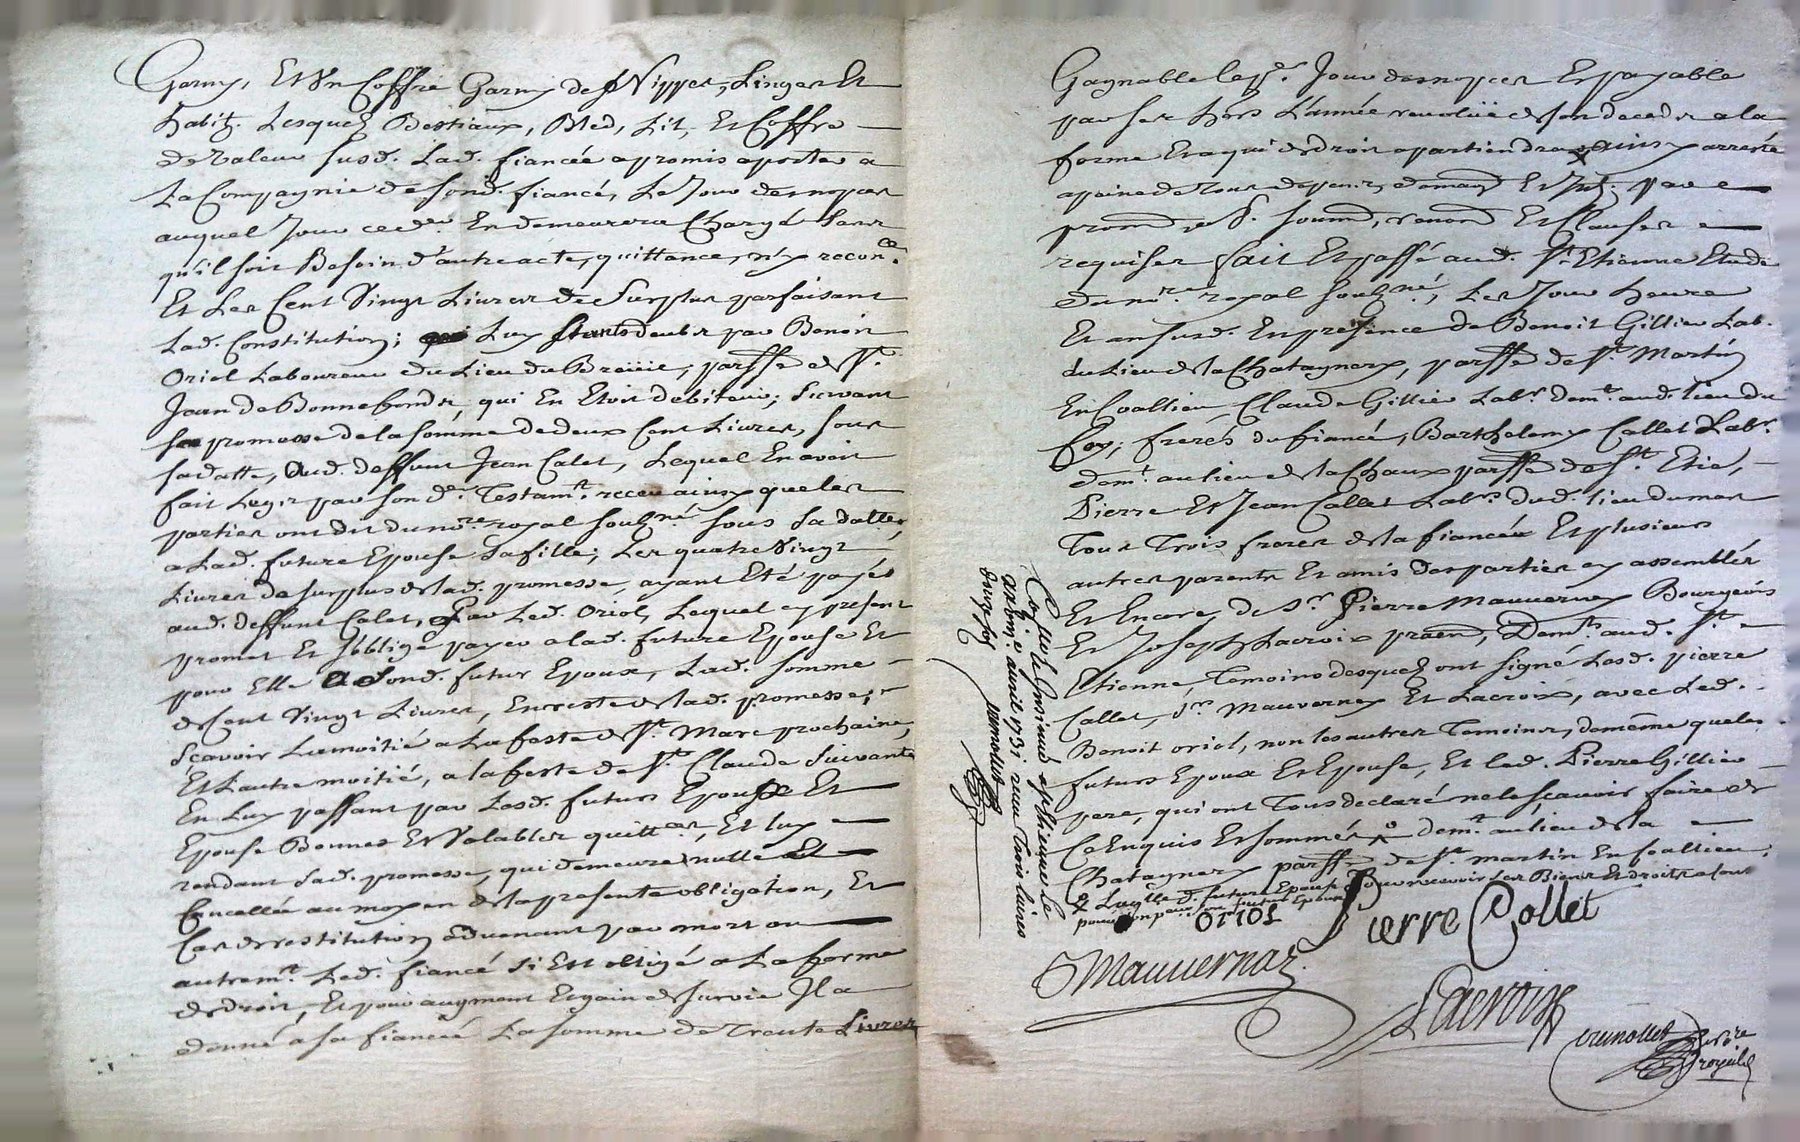 Garny, Et Un Coffre Garny de Nippes, Linges Et
habitz. Lesquelz Bestiaux, Bled, Lit, Et Coffre
de valeur susd. Lad. fiancée a promis aporter a
La Compagnie de sond. fiancé, Le Jour des nopces
auquel Jour ced. En demeurera Chargé sans
qu'il soit Besoin d'autre acte, quittance, ny recon.ce
Et Les Cent Vingt Livres de Surplus parfaisant
Lad. Constitution; Luy deubz par Benoit
Oriol Laboureur du Lieu du, parsse de St.
Jean de Bonnefondz, qui En Etoit debiteur; suivant
sa promesse de la somme de deux Cent Livres, sous
sa datte, aud. deffunt Jean Calet, Lequel En avoit
fait Legz par son d. Testamt. receu ainsy que les
parties ont dit du nore. royal soubzné. sous sa datte,
a Lad. future Epouse sa fille; Les quatre Vingt
Livres de surplus de lad. promesse, ayant Eté payés
aud. deffunt Calet, Par Led. Oriol, Lequel cy present
promet Et s'oblige payer a lad. future Epouse Et
pour Elle a sond. futur Epoux, Lad. somme
de Cent Vingt Livres, En reste de lad. promesse;
sçavoir La moitié a La feste de St. Marc prochaine,
Et L'autre moitié, a la feste de St. Claude suivante
En Luy passant par Lesd. futurs Epoux Et
Epouse Bonnes Et Valables quittces, Et luy
rendant Lad. promesse, qui demeure nulle Et
Cancellée au moyen de la presente obligation, Et
Cas de restitution advenant par mort ou
autremt. Led. fiancé s'i Est obligé a La forme
de droit, Et pour augment Et gain de survie Il a
donné a sa fiancée La somme de Trente Livres
Gagnable led. Jour des nopces Et payable
par ses hoirs L'année revoluë de son decedz a la
forme Et a qui de droit apartiendra ainsy arresté
a peine de tous depens, domag. Et Int. par
prom. soumis, renond. Et Clauses
requises fait Et passé aud. St. Etienne Etude
du nore. royal soubzné, Les Jour heure
Et an susd. En presence de Benoit Gillier Lab.
du Lieu de la Chatagnery, parsse de St. Martin
En Coallieu, Claude Gillier Labr. demt. aud. lieu du
Coy; freres du fiancé, Barthelemy Callet Labr.
demt. au lieu de la Chaux parsse de St. Etie,
Pierre Et Jean Callet Labrs. dud. lieu du mas
Tous Trois freres de la fiancée Et plusieurs
autres parents Et amis des parties cy assemblés
Et Encore de Sr. Pierre Mauverney Bourgeois
Et Joseph Lacroix, Demts. aud. St.
Etienne, Temoins desquelz ont signé Lesd. pierre
Callet, Sr. Mauverney Et Lacroix, avec Led.
Benoit oriol, non les autres Temoins, de même que les
futurs Epoux Et Epouse, Et led. Pierre Gillier
pere, qui ont Tous declaré ne le sçavoir faire de
Ce Enquis Et sommés demt. au lieu de la
Chatagnery parsse de St. martin En Coallieu;
Laq.lle d. future Epouse Pour recevoir ses Biens Et droitz a fait
pour son futur Epoux
Coller le Insinué a St. Etienne le
avril 1731 receu Trois livres
douze sols
oriol
Pierre Collet
Mauuernay
Lacroix
nore
royal